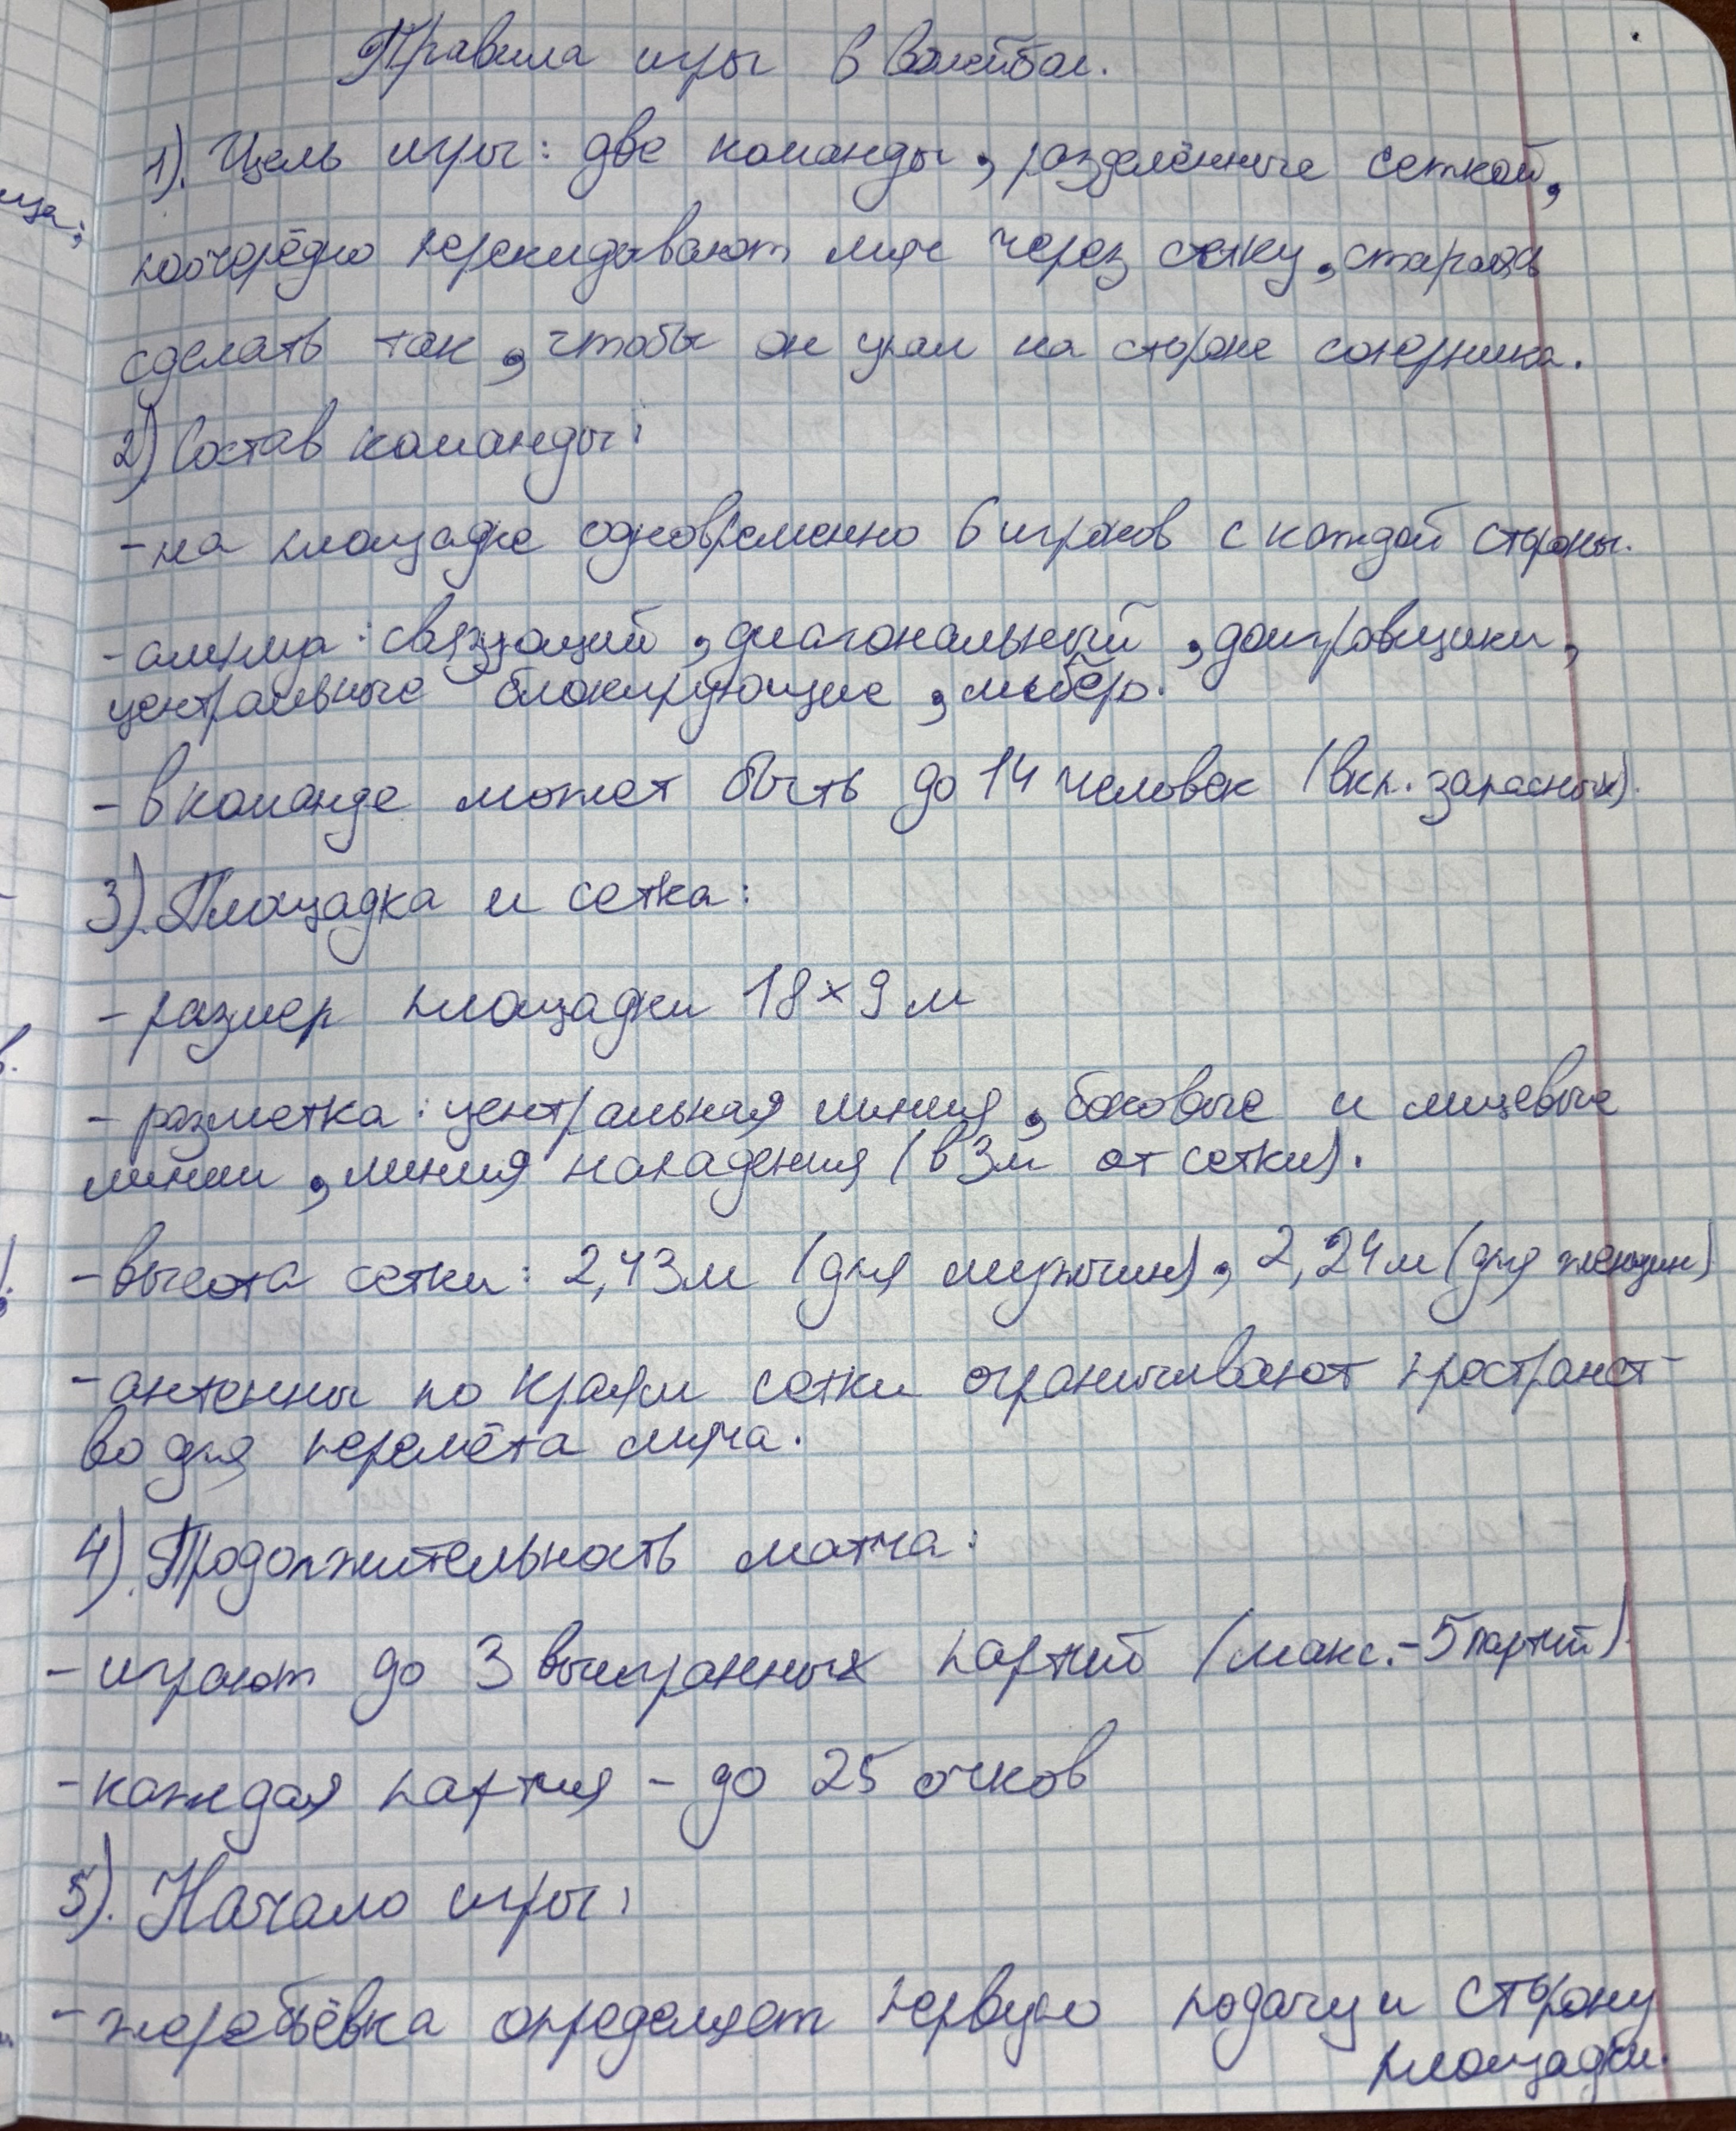 Правила игры в волейбол.
1). Цель игры: две команды, разделённые сеткой,
поочерёдно перекидывают мяч через сетку, стараясь
сделать так, чтобы он упал на стороне соперника.
2) Состав команды:
- на площадке одновременно 6 игроков с каждой стороны.
- : связующий, диагональный, доигровщики,
центральные блокирующие, либеро.
- в команде может быть до 14 человек (вкл. запасных).
3). Площадка и сетка:
- размер площадки 18×9 м
- разметка: центральная линия, боковые и лицевые
линии, линия нападения (в 3м от сетки).
- высота сетки: 2,43м (для мужчин), 2,24м (для женщин)
- антенны по краям сетки ограничивают пространст-
во для перелёта мяча.
4). Продолжительность матча:
- играют до 3 выигранных партий (макс. - 5 партий).
- каждая партия - до 25 очков
5). Начало игры:
- жеребьёвка определяет первую подачу и сторону
площадки.